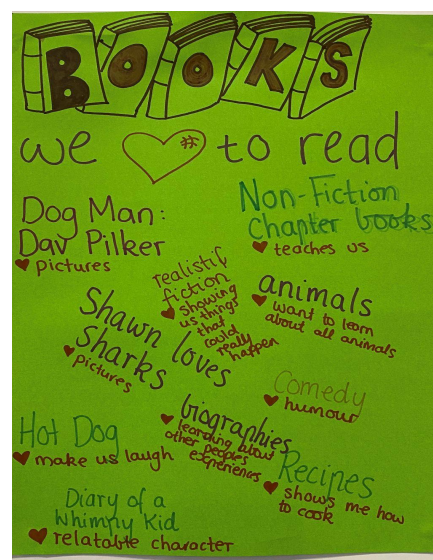 BOOKS
we to read
Dog Man:
Dav Pilker
pictures
Non-Fiction
chapter books
teaches us
realistic
fiction
showing
us things
that
could
really
happen
animals
want to learn
about all animals
Shawn loves
Sharks
pictures
Comedy
humour
Hot Dog
make us laugh
biographies
learning about
other peoples
experiences
Recipes
shows me how
to cook
Diary of a
Whimpy Kid
relatable character